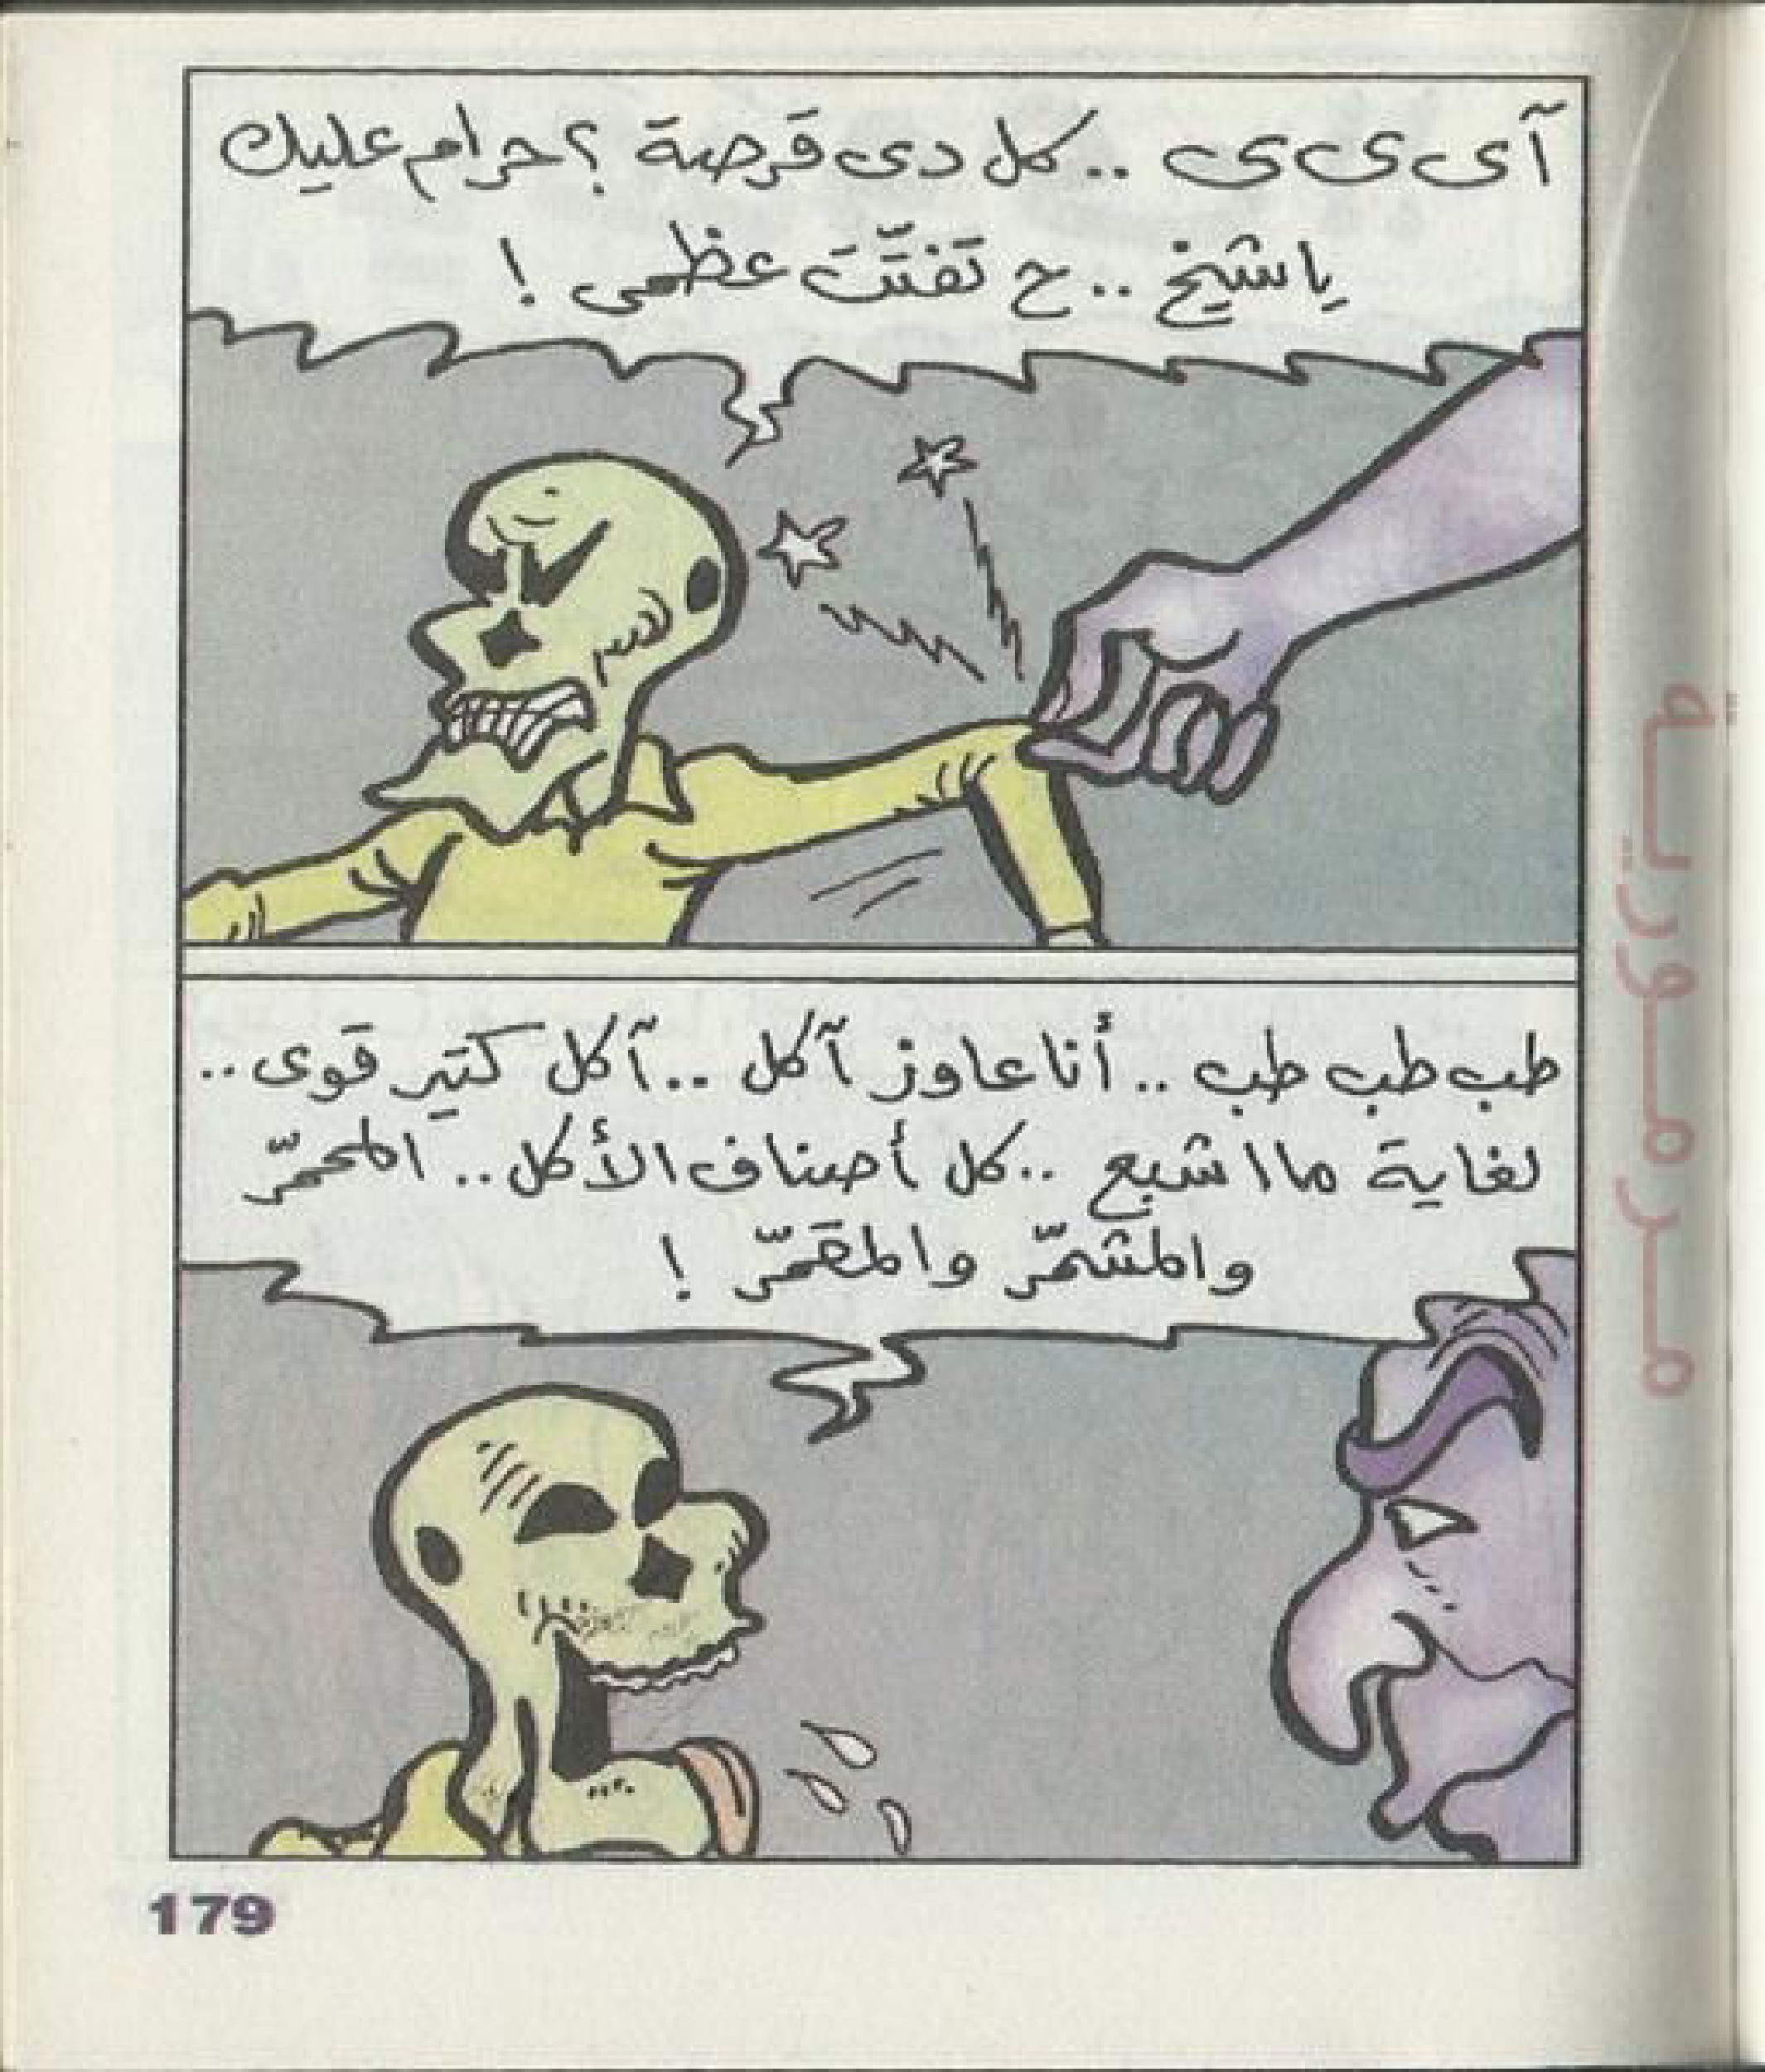 آى ى ى .. كل دى قرصة ؟ حرام عليك
ياشيخ .. ح تَفتّتَ عظمى !
طب طب طب .. أنا عاوز آكل .. آكل كتير قوى ..
لغاية ما اشبع .. كل أصناف الأكل .. المحمّر
والمشمّر والمقمّر !
179
مرمورية